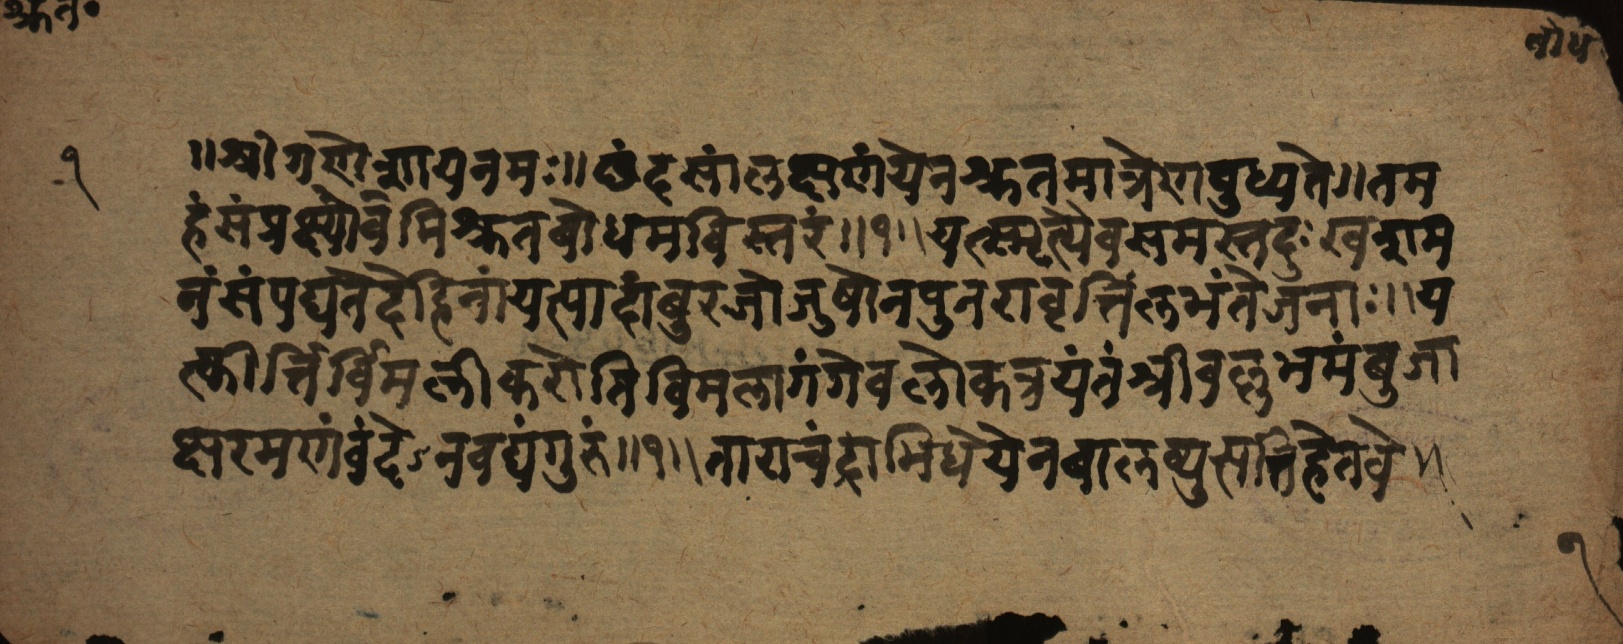 श्रुत॰
बोध
१
॥श्रीगणेशायनमः॥छंदसांलक्षणंयेनश्रुतमात्रेणबुध्यते॥तम
हंसंप्रवक्ष्यामिश्रुतबोधमविस्तरं॥१॥यत्स्मृत्यैवसमस्तदुःखशम
नंसंपद्यतेदेहिनांयत्पादांबुरजोजुषोनपुनरावृत्तिंलभंतेजनाः॥य
त्कीर्त्तिर्विमलीकरोतिविमलागंगेवलोकत्रयंतंश्रीवल्लभमंबुजा
क्षरमणंवंदेऽनवद्यंगुरुं॥१॥ताराचंद्राभिधेयेनबालव्युत्पत्तिहेतवे॥
१